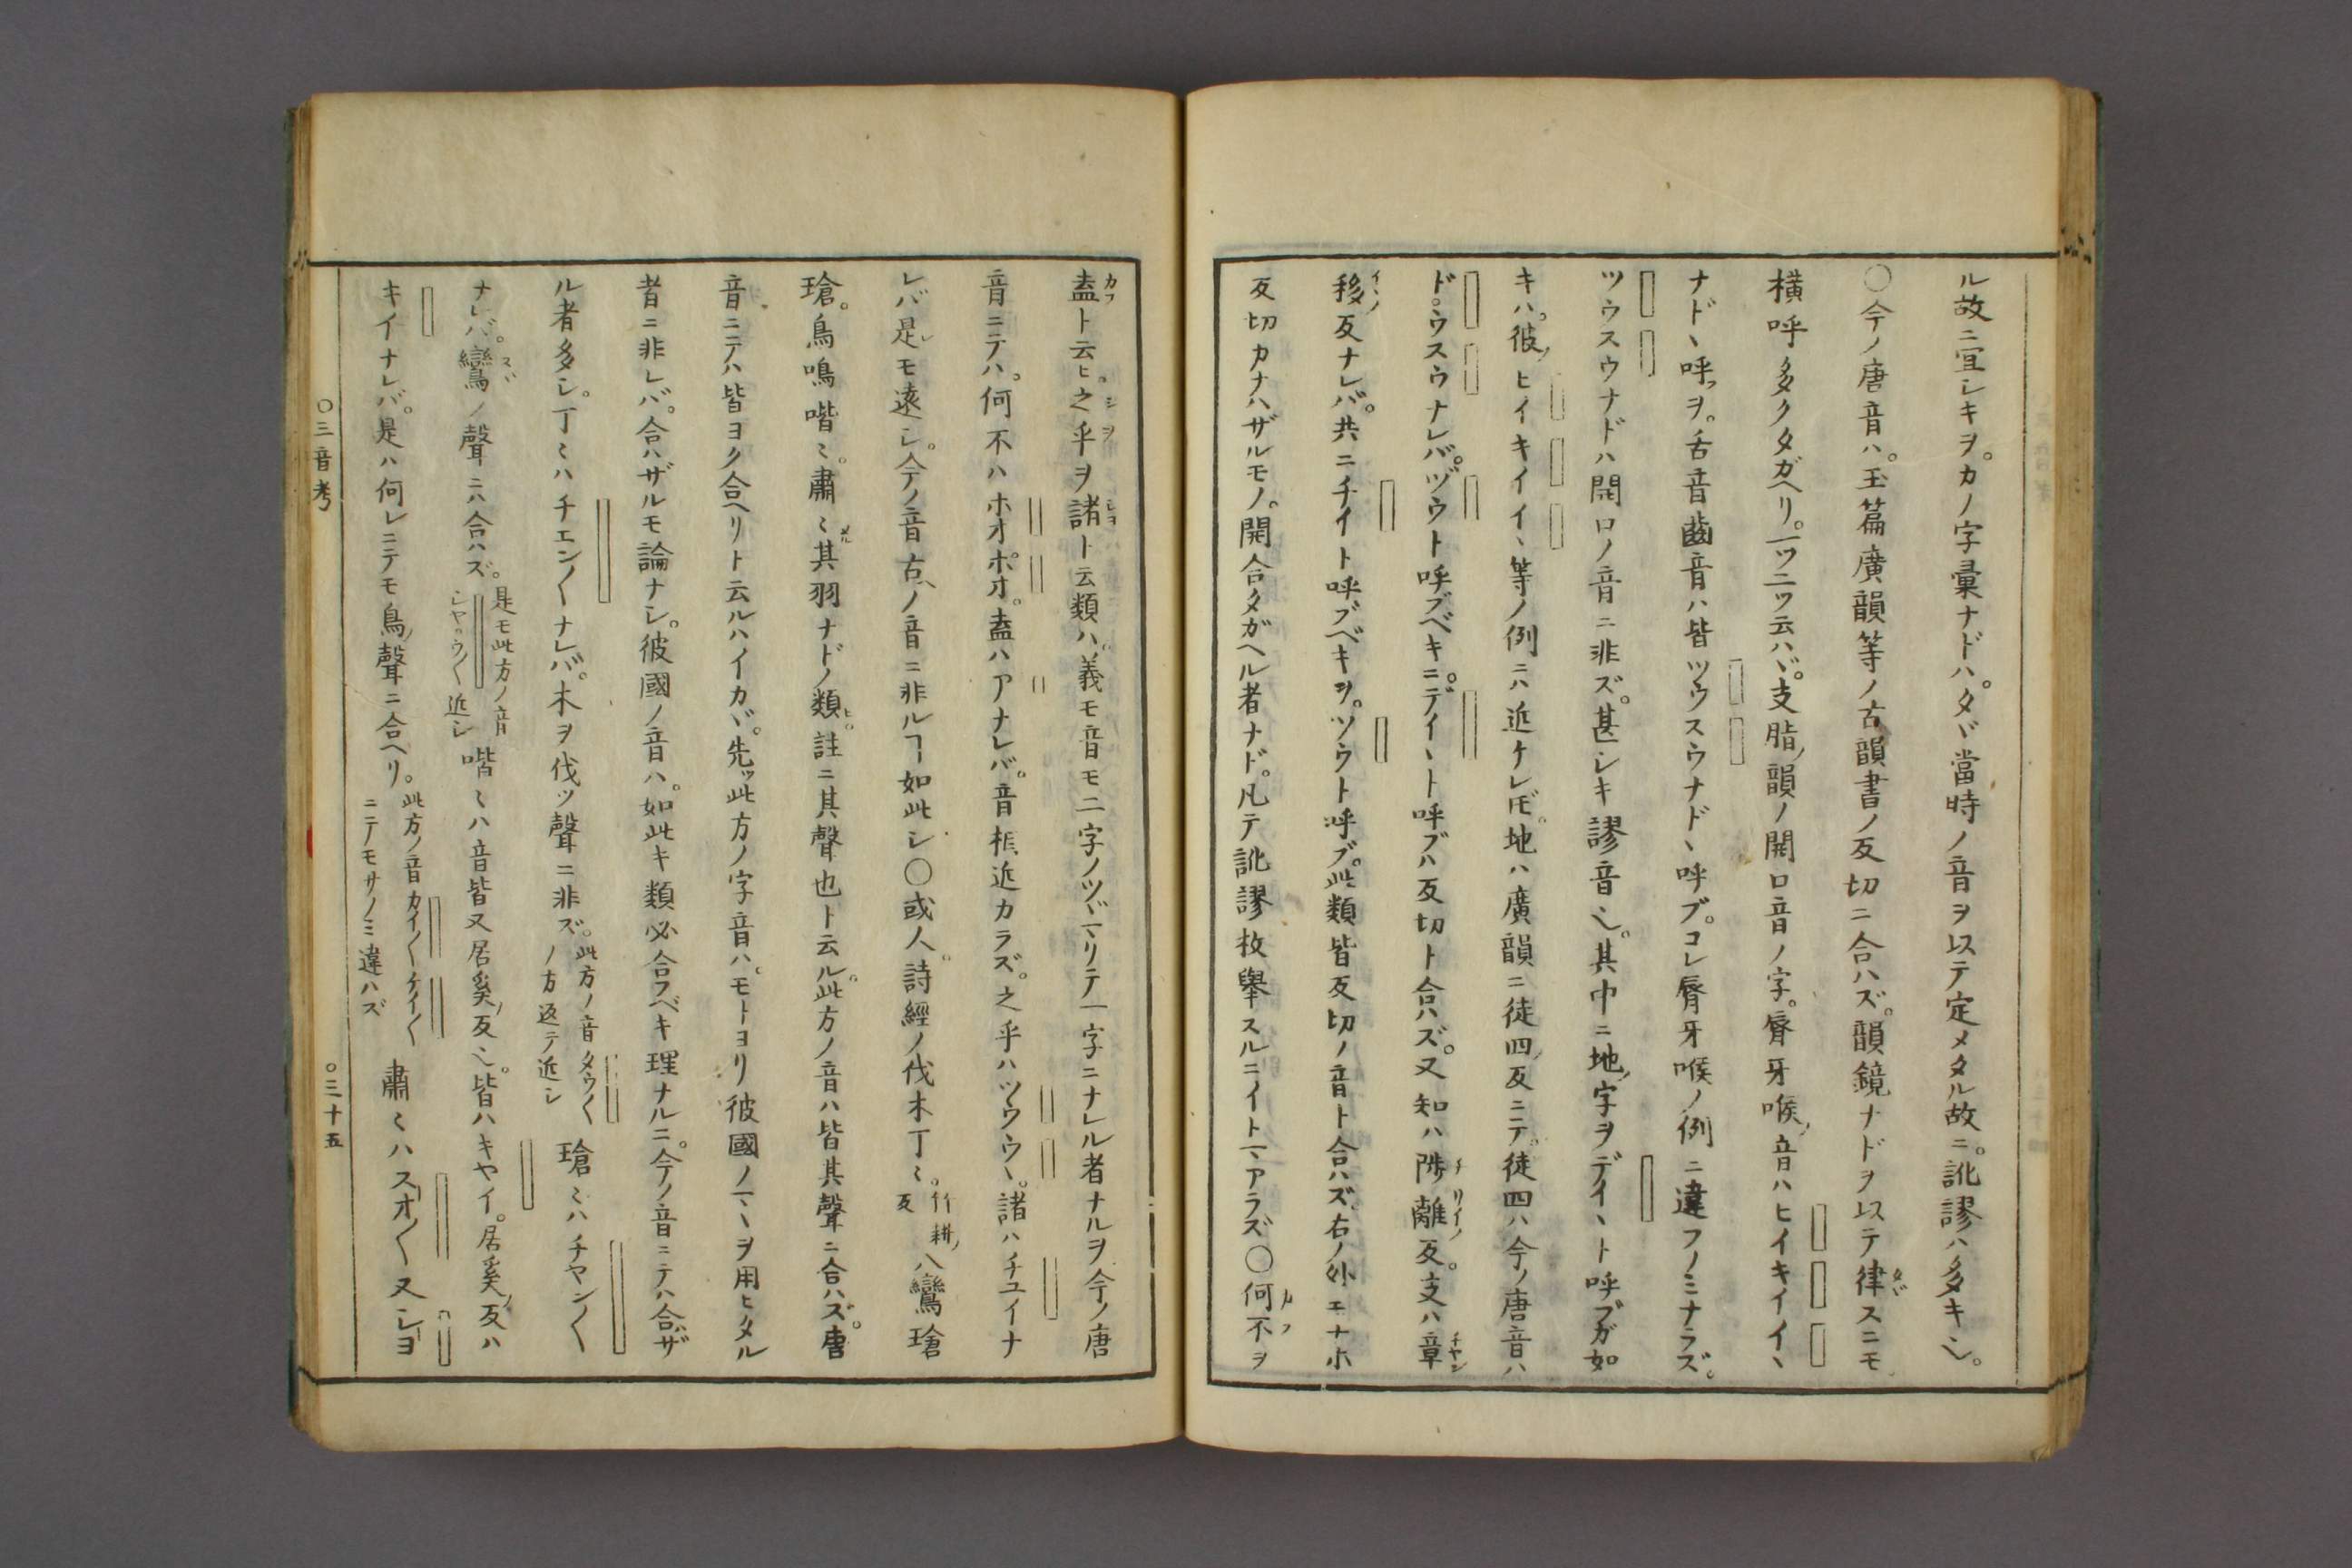 ル故ニ宜シキヲ。カノ字彙ナドハ。タヾ當時ノ音ヲ以テ定メタル故ニ。訛謬ハ多キ也。
○今ノ唐音ハ。玉篇廣韻等ノ古韻書ノ反切ニ合ハズ。韻鏡ナドヲ以テ律スニモ
横呼多クタガヘリ。一ツ二ツ云ハヾ。支脂ノ韻ノ開口音ノ字。脣牙喉ノ音ハヒイキイイヽ
ナドヽ呼ブヲ。舌音齒音ハ皆ツウスウナドヽ呼ブ。コレ脣牙喉ノ例ニ違フノミナラズ。
ツウスウナドハ開口ノ音ニ非ズ。甚シキ謬音也。其中ニ地ノ字ヲデイヽト呼ブガ如
キハ。彼ノヒイキイイヽ等ノ例ニハ近ケレドモ。地ハ廣韻ニ徒四ノ反ニテ。徒四ハ今ノ唐音ハ
ドウスウナレバ。ヅウト呼ブベキニ。デイヽト呼ブハ反切ト合ハズ。又知ハ陟離反。支ハ章
移反ナレバ。共ニチイト呼ブベキヲ。ツウト呼ブ。此類皆反切ノ音ト合ハズ。右ノ外ニナホ
反切カナハザルモノ。開合タガヘル者ナド。凡テ訛謬枚擧スルニイトマアラズ○何不ヲ
盍ト云ヒ。之乎ヲ諸ト云類ハ。義モ音モ二字ノツヾマリテ一字ニナレル者ナルヲ今ノ唐
音ニテハ。何不ハホオポオ。盍ハアナレバ。音相近カラズ。之乎ハツウウヽ。諸ハチユイナ
レバ是レモ遠シ。今ノ音古ヘノ音ニ非ルヿ如此シ○或人。詩經ノ伐木丁〻。竹耕ノ反八鸞瑲
瑲。鳥鳴喈〻。肅〻其羽ナドノ類。註ニ其聲也ト云ル。此方ノ音ハ皆其聲ニ合ハズ。唐
音ニテハ皆ヨク合ヘリト云ルハイカヾ。先ッ此方ノ字音ハ。モトヨリ彼國ノマヽヲ用ヒタル
者ニ非レバ。合ハザルモ論ナシ。彼國ノ音ハ。如此キ類必合フベキ理ナルニ。今ノ音ニテハ合ハザ
ル者多シ。丁〻ハチエン〱ナレバ。木ヲ伐ツ聲ニ非ズ。此方ノ音タウ〱ノ方返テ近シ瑲〻ハチヤン〱
ナレバ。鸞ノ聲ニハ合ハズ。是モ此方ノ音シヤウ〱近シ喈〻ハ音皆又居奚ノ反也。皆ハキヤイ。居奚ノ反ハ
キイナレバ。是ハ何レニテモ鳥ノ聲ニ合ヘリ。此方ノ音カイ〱ケイ〱ニテモサノミ違ハズ肅〻ハスオ〱又シヨ
○三音考
○三十五